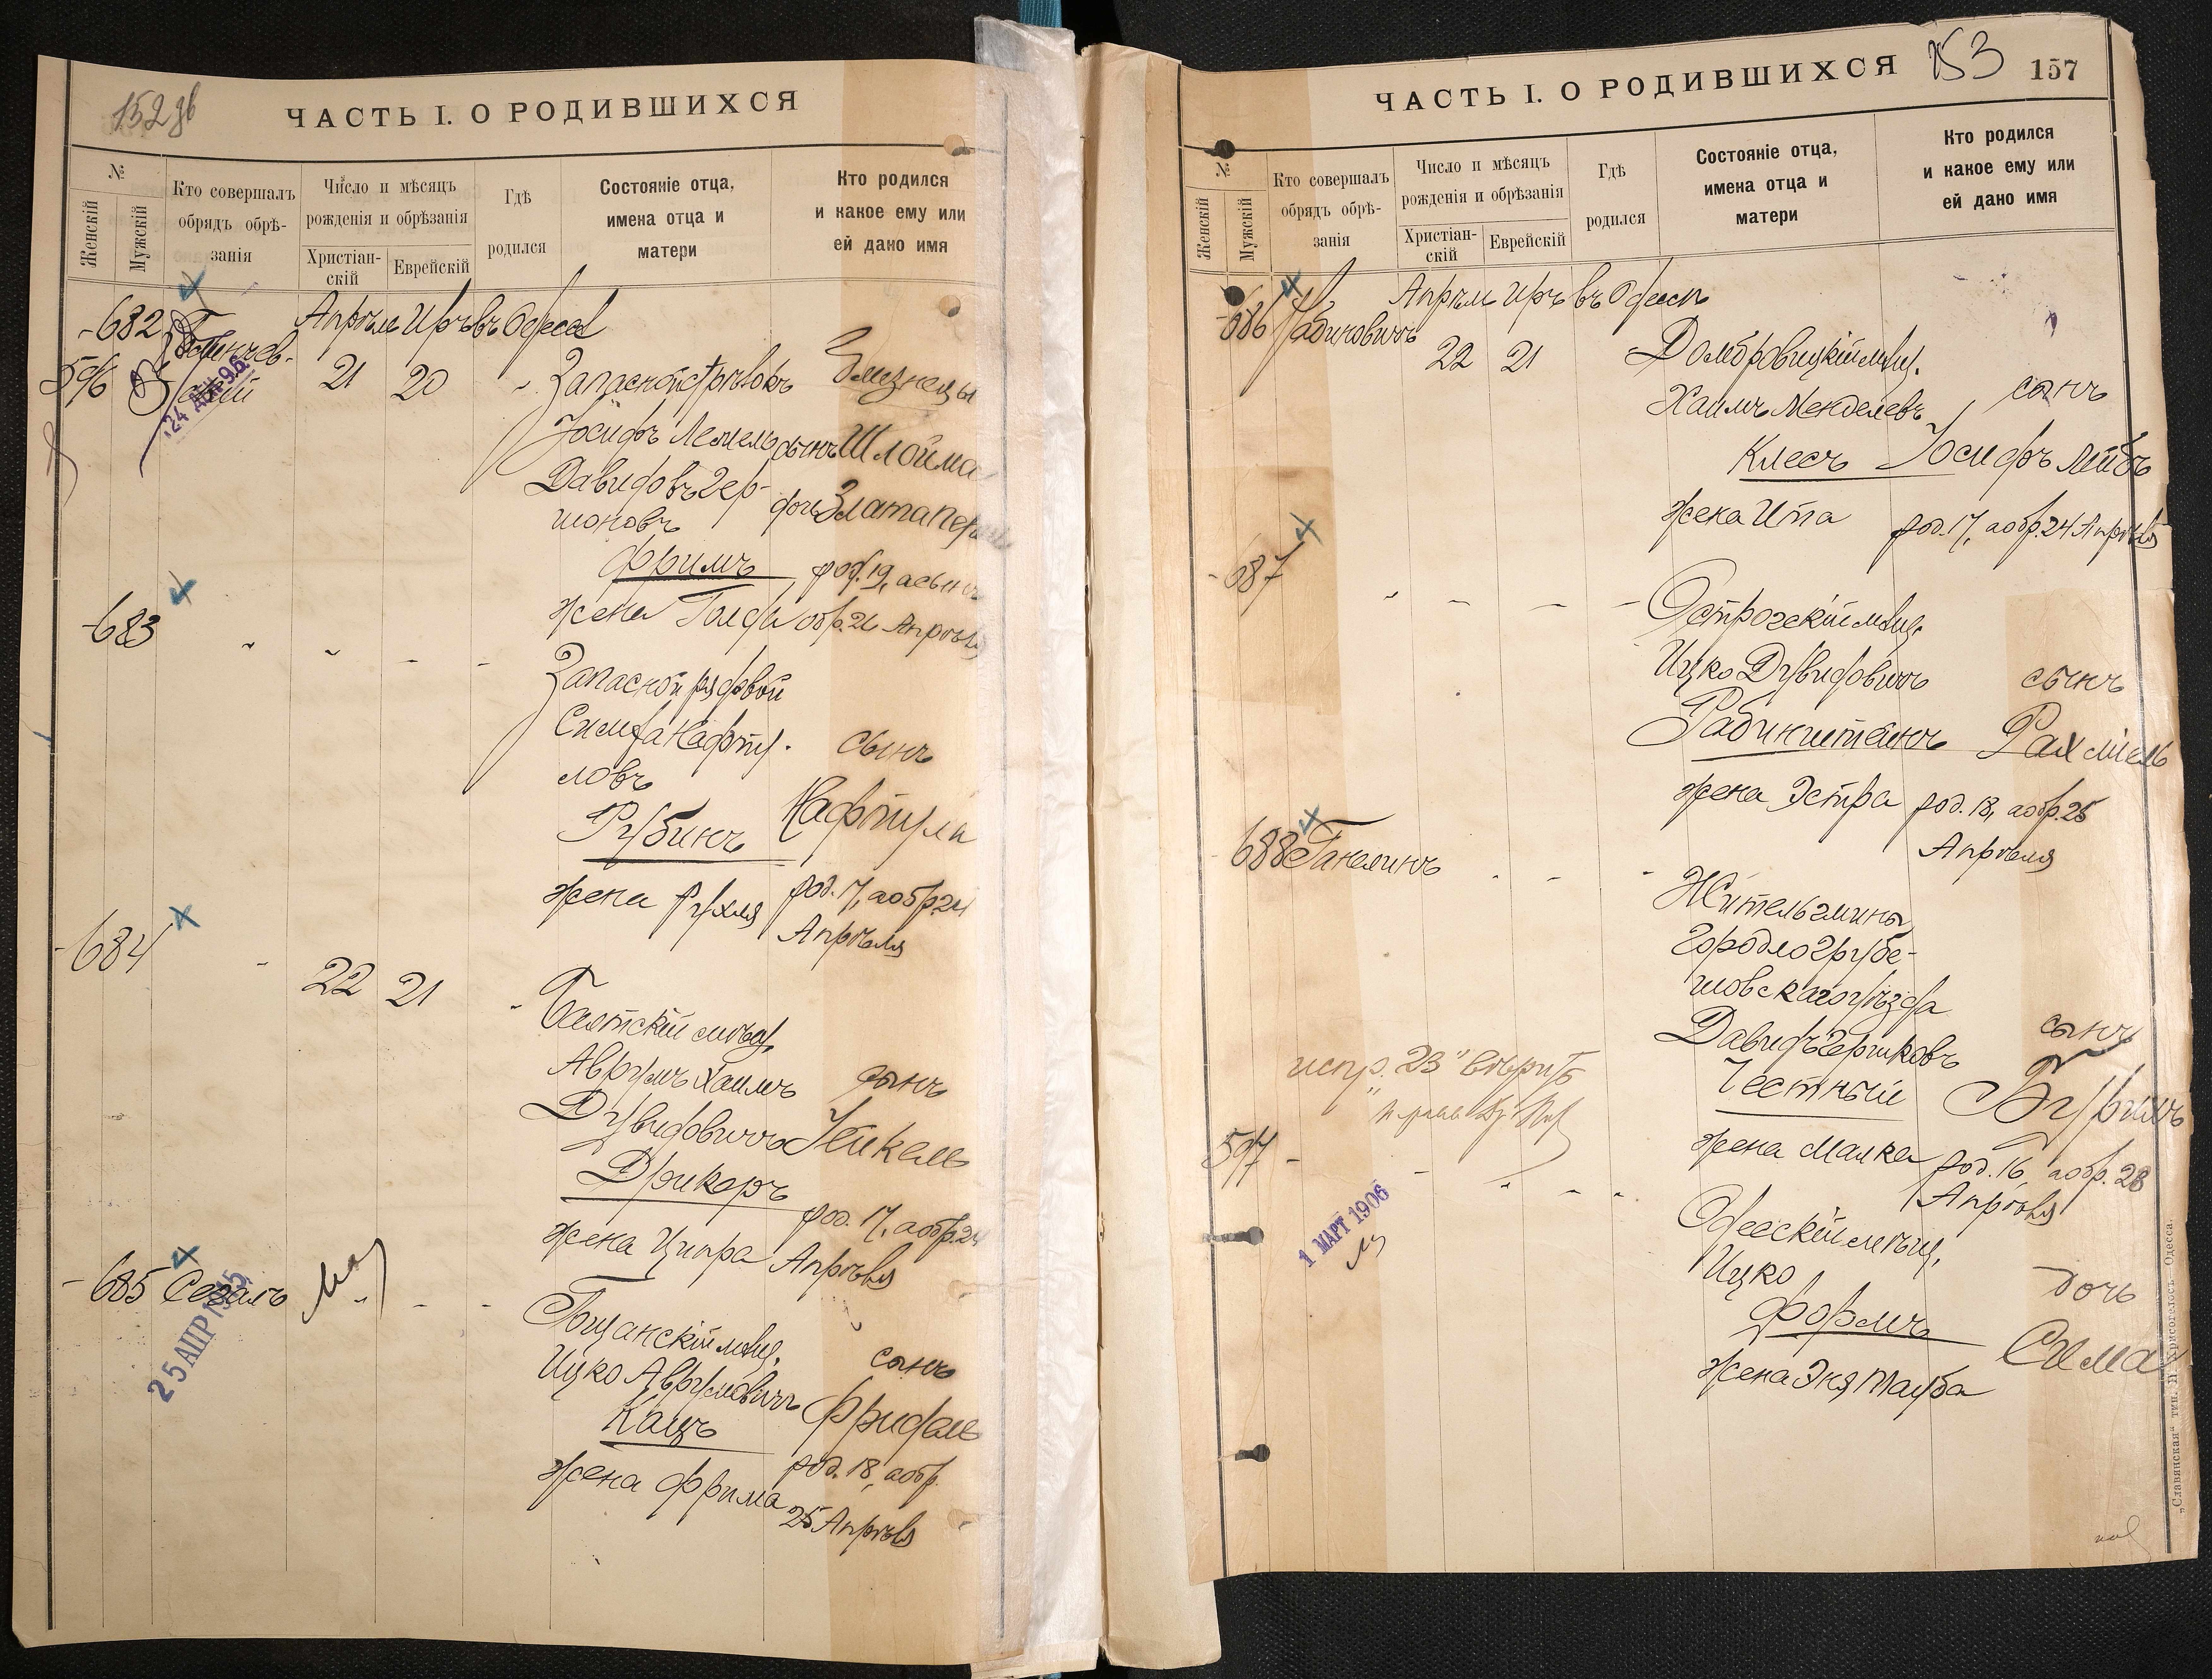 ЧАСТЬ I. О РОДИВШИХСЯ
№
Женскій
Мужскій
Кто совершалъ
обрядъ обрѣ-
занія
Число и мѣсяцъ
рожденія и обрѣзанія
Христіан-
скій
Еврейскій
Гдѣ
родился
Состояніе отца,
имена отца и
матери
Кто родился
и какое ему или
ей дано имя
682
Апрѣль Иръ въ Одессѣ
596
21 20
Запасной стрѣлокъ
Близнецы
Іосифъ Лемель
сынъ Шлойма
Давидовъ Гер-
шоновъ
дочь Злата
Фримъ
род. 19, а сынъ
жена Голда
обр. 26 Апрѣля
683
Запасной рядовой
Симха Нафту-
ловъ
сынъ
Рубинъ
Нафтула
жена Рухля
род. 17, а обр. 24
Апрѣля
684
22 21
Балтскій мѣщ.
Аврумъ Хаимъ
сынъ
Дувидовичъ
Хайкель
Друкеръ
род. 17, а обр. 24
жена Ципра
Апрѣля
685 Сегалъ
25 АПР
Гощанскій мѣщ.
Ицко Аврумовичъ
сынъ
Кацъ
Фридель
жена Фрима
род. 18, а обр.
25 Апрѣля
ЧАСТЬ I. О РОДИВШИХСЯ
153
157
№
Женскій
Мужскій
Кто совершалъ
обрядъ обрѣ-
занія
Число и мѣсяцъ
рожденія и обрѣзанія
Христіан-
скій
Еврейскій
Гдѣ
родился
Состояніе отца,
имена отца и
матери
Кто родился
и какое ему или
ей дано имя
686 Рабиновичъ
Апрѣль Иръ въ Одессѣ
22 21
Домбровицкій мѣщ.
Хаимъ Менделевъ
сынъ
Клесъ
Іосифъ Лейбъ
жена Ита
род. 17, а обр. 24 Апрѣля
687
Острогскій мѣщ.
Ицко Дувидовичъ
сынъ
Рабинштейнъ
Рахміель
жена Эстра
род. 18, а обр. 25
Апрѣля
688 Ганелинъ
Житель гмины
Городло Грубе-
шовскаго уѣзда
Давидъ Гершковъ
сынъ
Честный
Бурихъ
жена Малка
род. 16, а обр. 23
Апрѣля
испр. "23" вѣрить
597
1 МАРТ 1906
Одесскій мѣщ.
Ицко
дочь
Формъ
Сима
жена Эня Тауба
„Славянская“ тип. Н. Хрисогелосъ. Одесса.